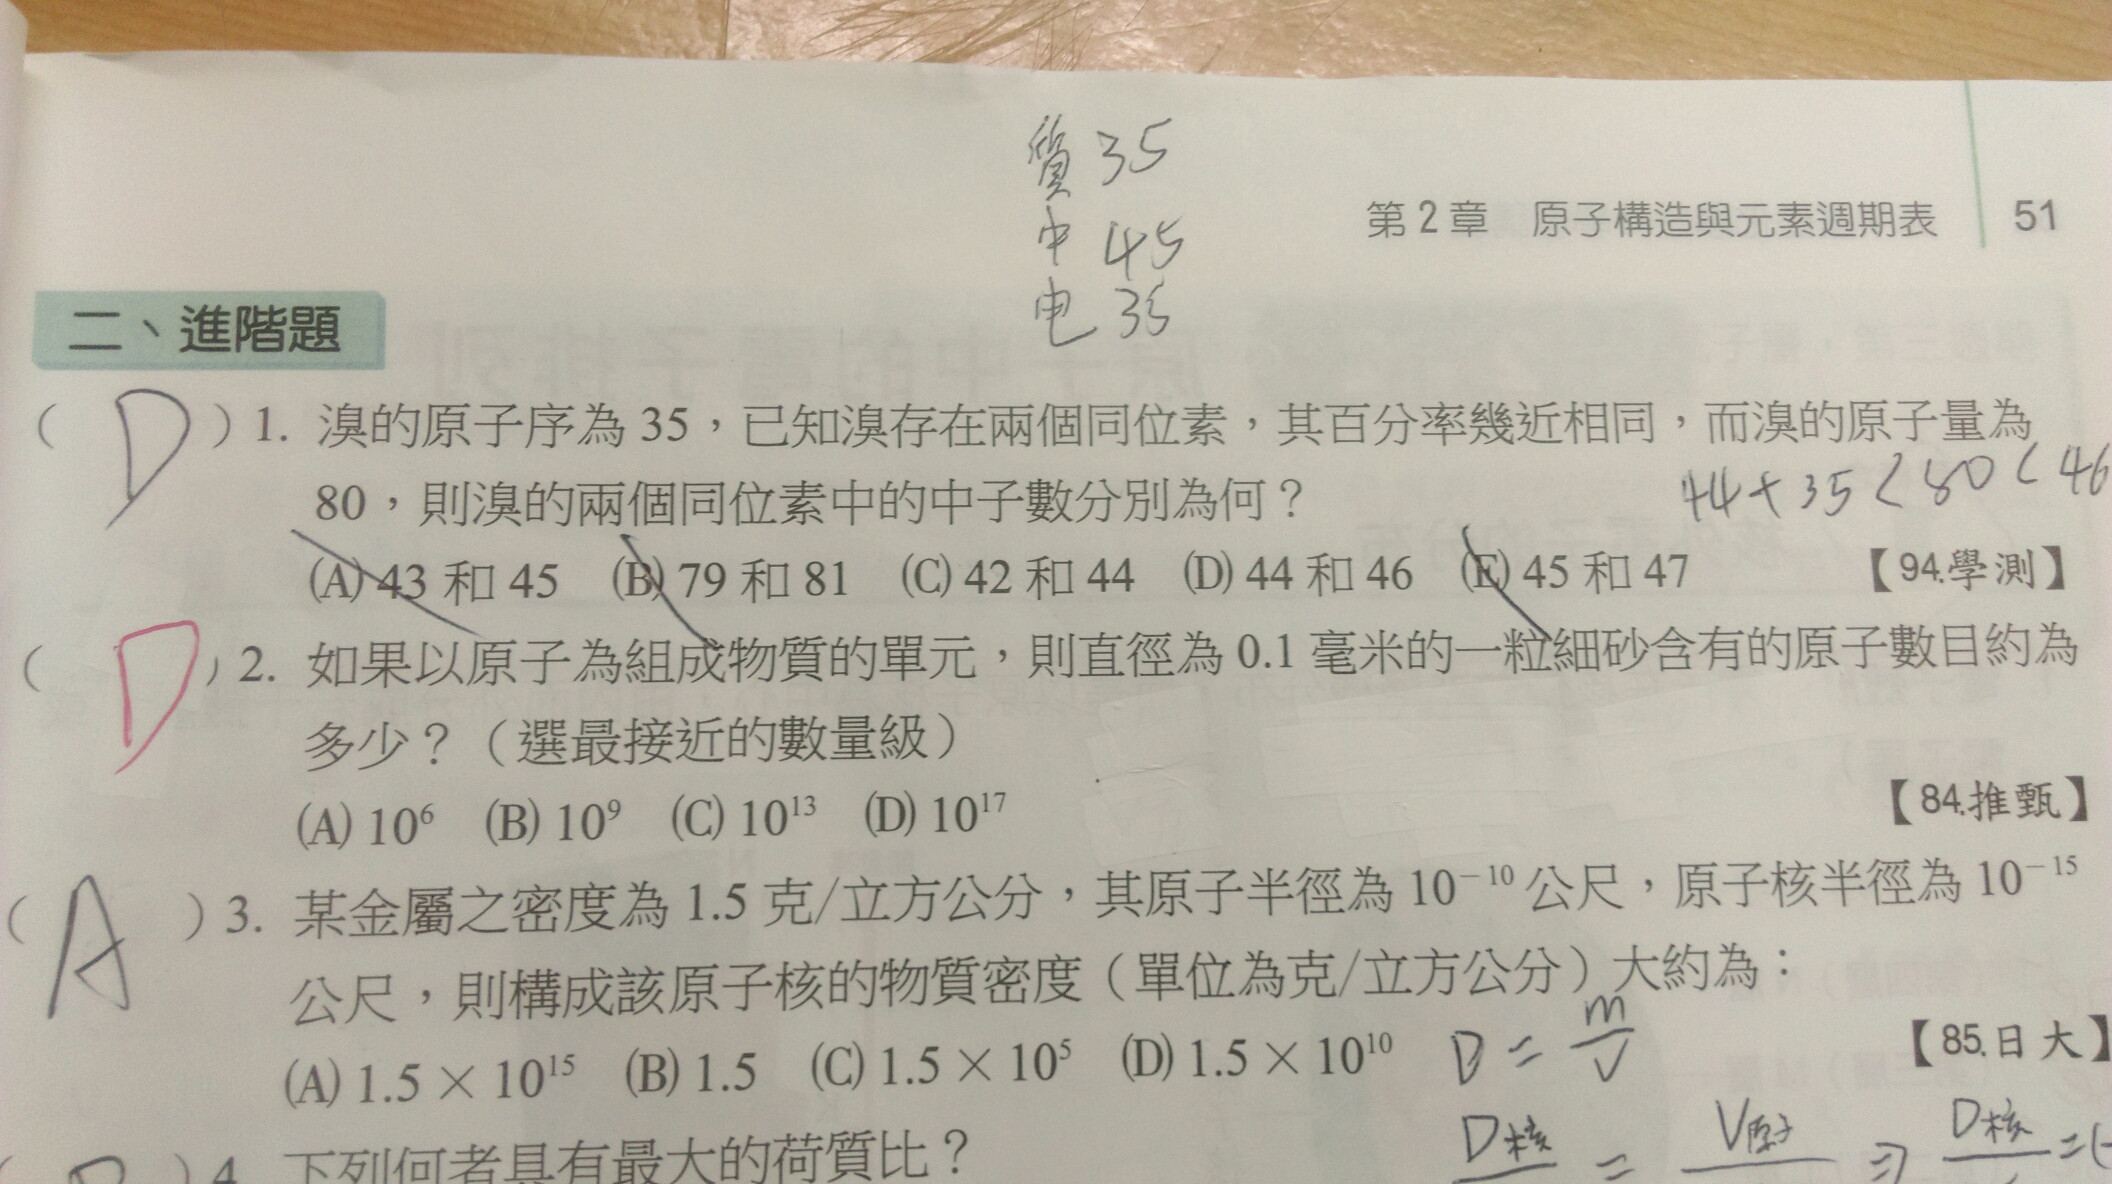 質 35
中 45
电 35
第2章 原子構造與元素週期表 51
二、進階題
( D ) 1. 溴的原子序為 35，已知溴存在兩個同位素，其百分率幾近相同，而溴的原子量為
80，則溴的兩個同位素中的中子數分別為何？
44+35<80<46
(A) 43 和 45 (B) 79 和 81 (C) 42 和 44 (D) 44 和 46 (E) 45 和 47 【94.學測】
( D ) 2. 如果以原子為組成物質的單元，則直徑為 0.1 毫米的一粒細砂含有的原子數目約為
多少？（選最接近的數量級）
(A) 10⁶ (B) 10⁹ (C) 10¹³ (D) 10¹⁷ 【84.推甄】
( A ) 3. 某金屬之密度為 1.5 克/立方公分，其原子半徑為 10⁻¹⁰ 公尺，原子核半徑為 10⁻¹⁵
公尺，則構成該原子核的物質密度（單位為克/立方公分）大約為：
(A) 1.5 × 10¹⁵ (B) 1.5 (C) 1.5 × 10⁵ (D) 1.5 × 10¹⁰ D = m/V 【85.日大】
( ) 4. 下列何者具有最大的荷質比？
D核 = V原子 ⇒ D核 =(